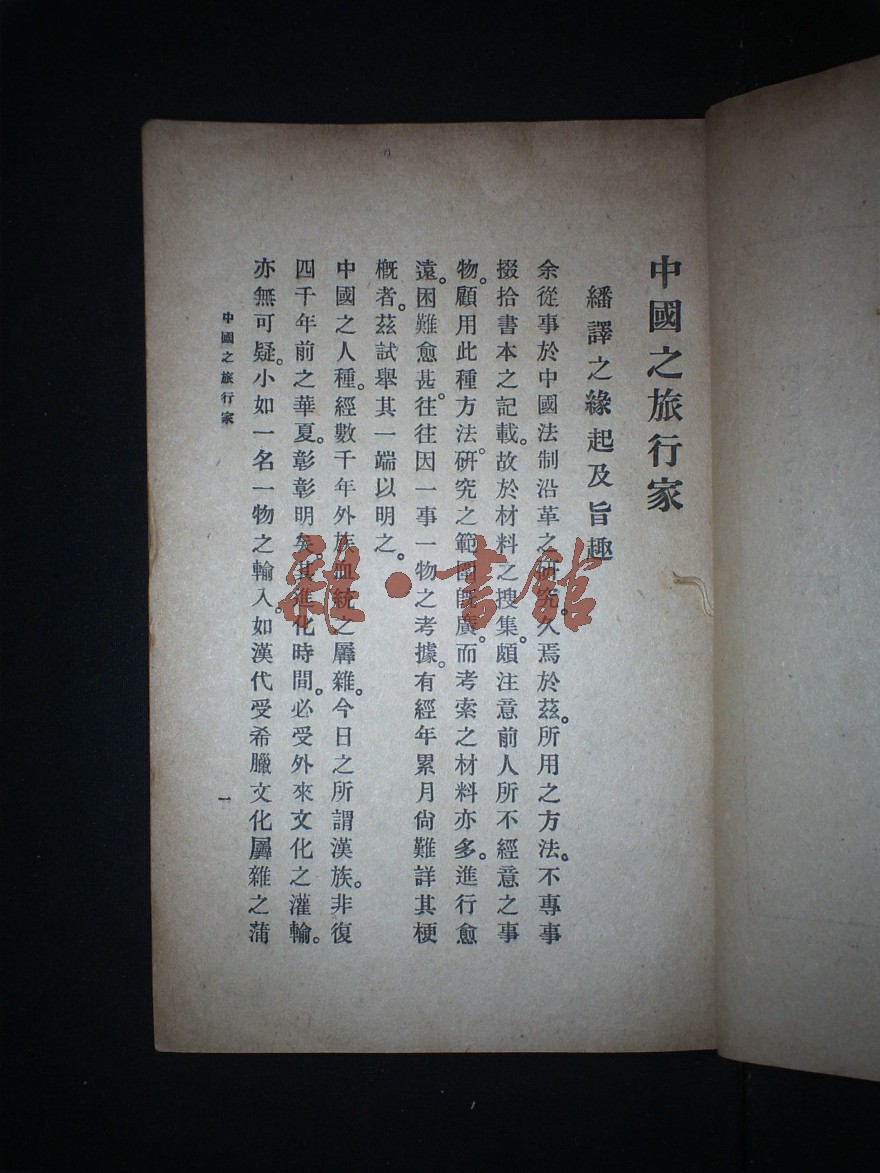 中國之旅行家
繙譯之緣起及旨趣
余從事於中國法制沿革之研究。久焉於茲。所用之方法。不專事
掇拾書本之記載。故於材料之搜集。頗注意前人所不經意之事
物。顧用此種方法。研究之範圍既廣。而考索之材料亦多。進行愈
遠。困難愈甚。往往因一事一物之考據。有經年累月尙難詳其梗
槪者。茲試舉其一端以明之。
中國之人種。經數千年外族血統之羼雜。今日之所謂漢族。非復
四千年前之華夏。彰彰明矣。其進化時間。必受外來文化之灌輸。
亦無可疑。小如一名一物之輸入。如漢代受希臘文化羼雜之蒲
中國之旅行家
一
雜·書館